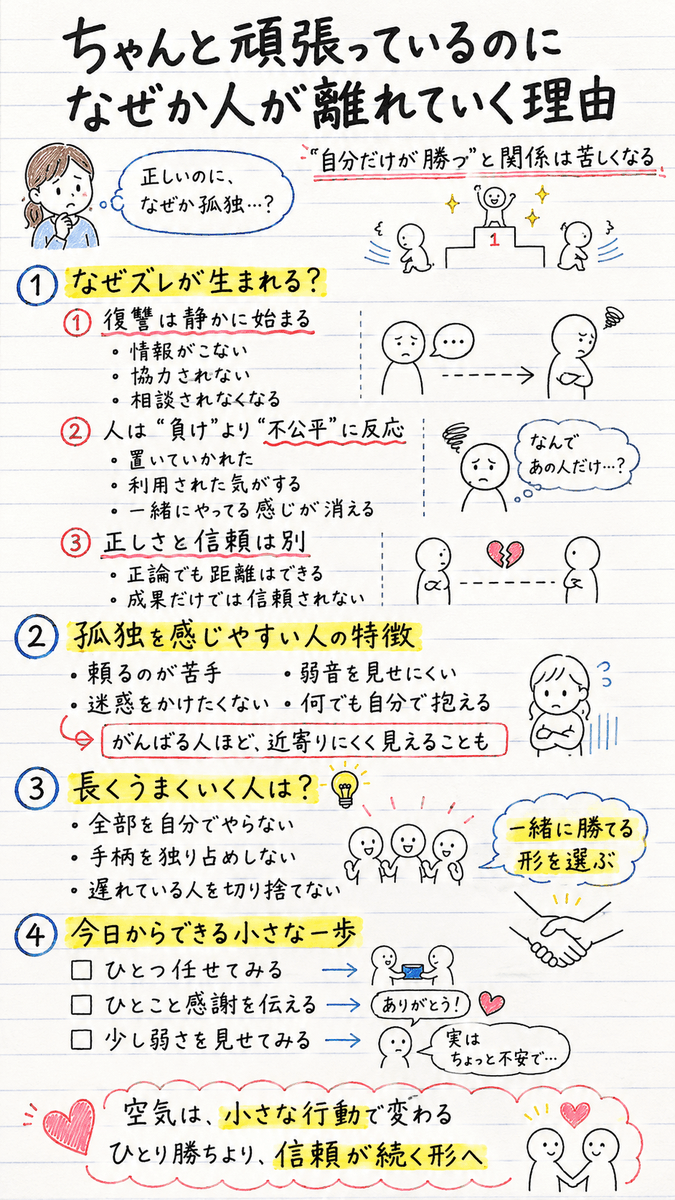 ちゃんと頑張っているのに
なぜか人が離れていく理由
正しいのに、
なぜか孤独…?
“自分だけが勝つ”と関係は苦しくなる
1
1 なぜズレが生まれる?
① 復讐は静かに始まる
• 情報がこない
• 協力されない
• 相談されなくなる
…
② 人は“負け”より“不公平”に反応
• 置いていかれた
• 利用された気がする
• 一緒にやってる感じが消える
なんで
あの人だけ…?
③ 正しさと信頼は別
• 正論でも距離はできる
• 成果だけでは信頼されない
2 孤独を感じやすい人の特徴
• 頼るのが苦手 • 弱音を見せにくい
• 迷惑をかけたくない • 何でも自分で抱える
がんばる人ほど、近寄りにくく見えることも
3 長くうまくいく人は?
• 全部を自分でやらない
• 手柄を独り占めしない
• 遅れている人を切り捨てない
一緒に勝てる
形を選ぶ
4 今日からできる小さな一歩
□ ひとつ任せてみる →
□ ひとこと感謝を伝える → ありがとう!
□ 少し弱さを見せてみる →
実は
ちょっと不安で…
空気は、小さな行動で変わる
ひとり勝ちより、信頼が続く形へ